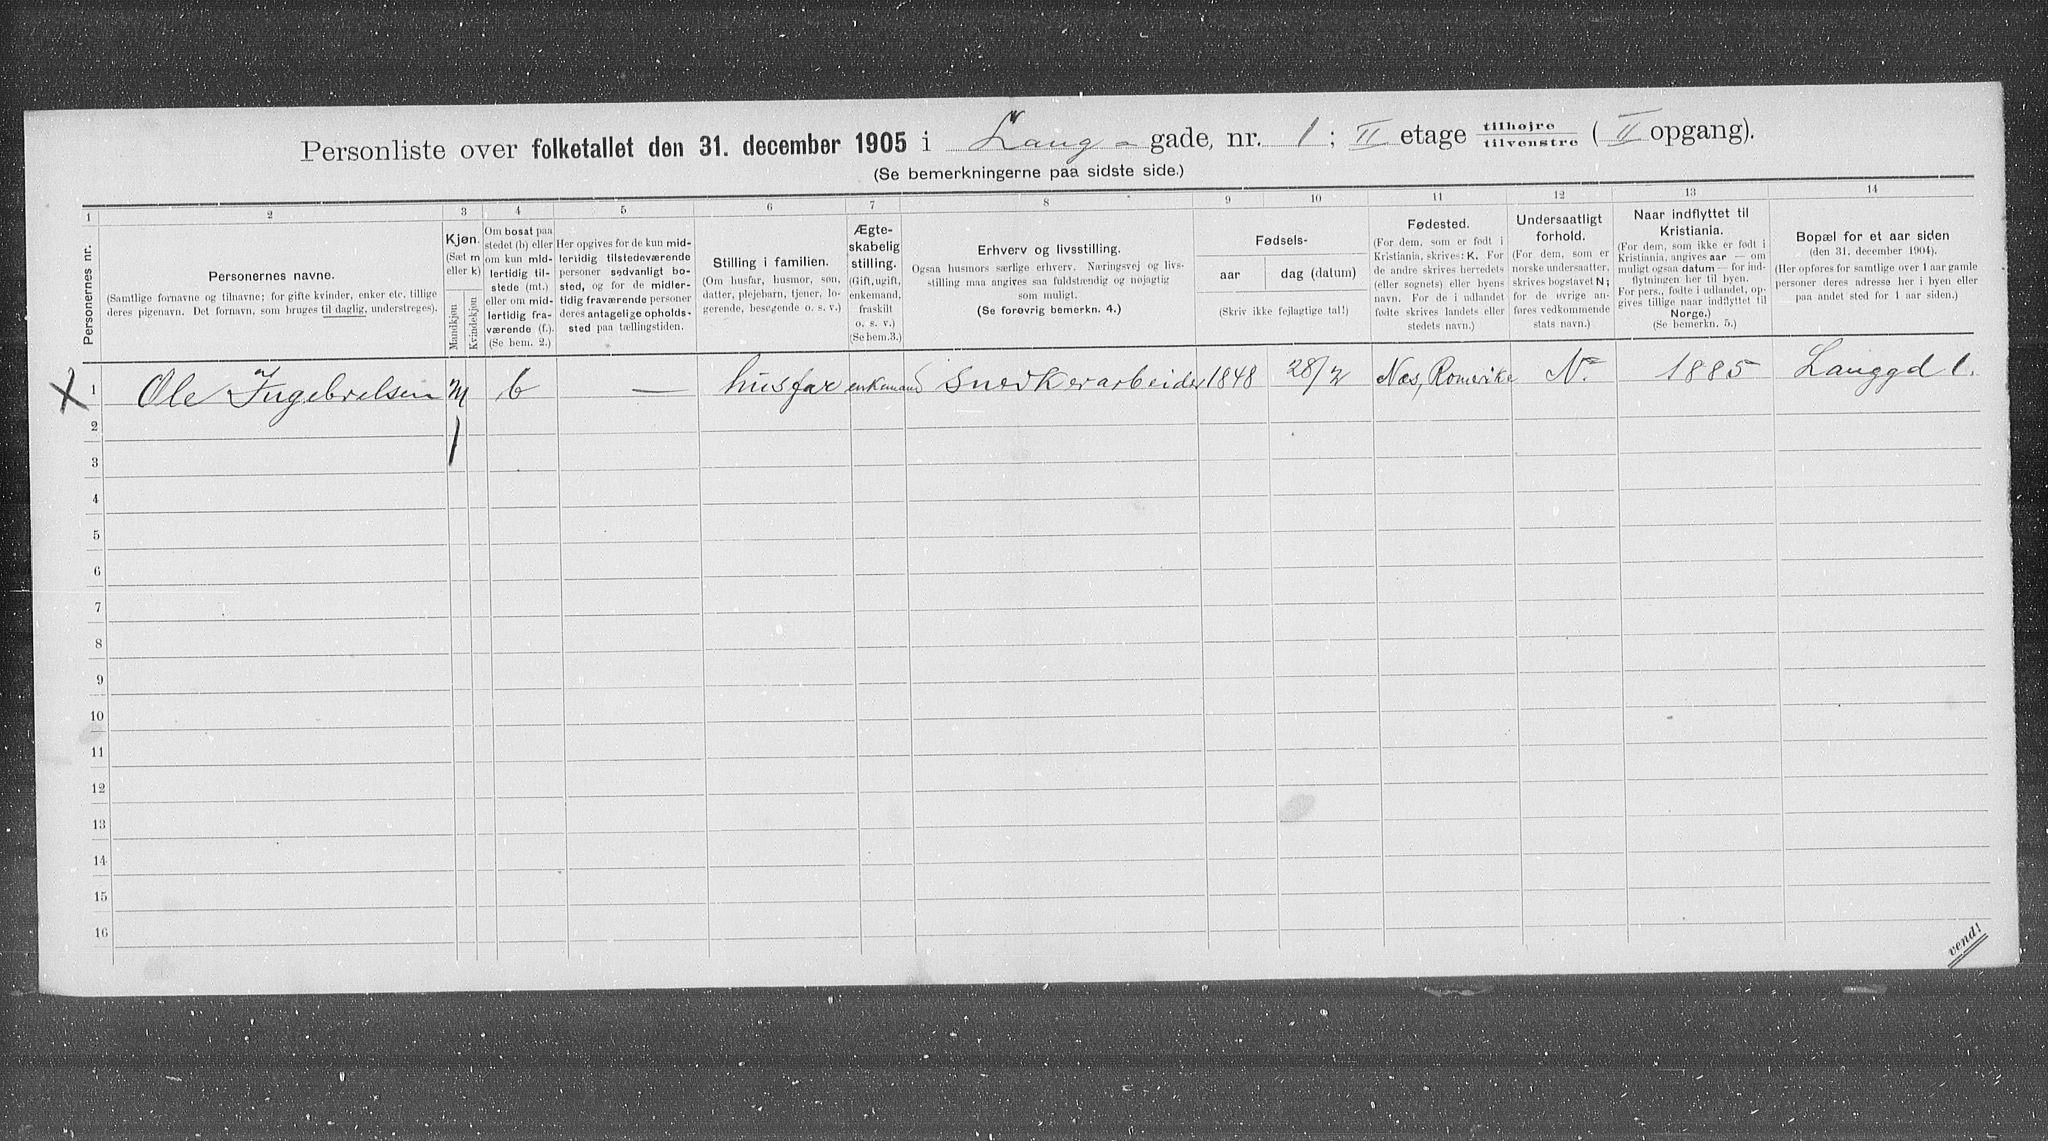 Personliste over folketallet den 31. december 1905 i Lang - gade, nr. 1; II etage tilhøjre / tilvenstre ( II opgang).
(Se bemerkningerne paa sidste side.)
1 2 3 4 5 6 7 8 9 10 11 12 13 14
Personernes nr.
Personernes navne.
(Samtlige fornavne og tilnavne; for gifte kvinder, enker etc. tillige
deres pigenavn. Det fornavn, som bruges til daglig, understreges).
Kjøn.
(Sæt m
eller k)
Mandkjøn
Kvindekjøn
Om bosat paa
stedet (b) eller
om kun mid-
lertidig til-
stede (mt.)
eller om mid-
lertidig fra-
værende (f.).
(Se bem. 2.)
Her opgives for de kun mid-
lertidig tilstedeværende
personer sedvanligt bo-
sted, og for de midler-
tidig fraværende personer
deres antagelige opholds-
sted paa tællingstiden.
Stilling i familien.
(Om husfar, husmor, søn,
datter, plejebarn, tjener, lo-
gerende, besøgende o. s. v.)
Ægte-
skabelig
stilling.
(Gift, ugift,
enkemand,
fraskilt
o. s. v.)
(Se bem.3.)
Erhverv og livsstilling.
Ogsaa husmors særlige erhverv. Næringsvej og livs-
stilling maa angives saa fuldstændig og nøjagtig
som muligt.
(Se forøvrig bemerkn. 4.)
Fødsels-
aar
dag (datum)
(Skriv ikke fejlagtige tal!)
Fødested.
(For dem, som er født i
Kristiania, skrives: K. For
de andre skrives herredets
(eller sognets) eller byens
navn. For de i udlandet
fødte skrives landets eller
stedets navn.)
Undersaatligt
forhold.
(For dem, som er
norske undersaatter,
skrives bogstavet N;
for de øvrige an-
føres vedkommende
stats navn.)
Naar indflyttet til
Kristiania.
(For dem, som ikke er født i
Kristiania, angives aar — om
muligt ogsaa datum — for ind-
flytningen her til byen.
For pers., fødte i udlandet, op-
gives tillige naar indflyttet til
Norge.)
(Se bemerkn. 5.)
Bopæl for et aar siden
(den 31. december 1904).
(Her opføres for samtlige over 1 aar gamle
personer deres adresse her i byen eller
paa andet sted for 1 aar siden.)
X 1 Ole Ingebrelsen m b — husfar enkemand Snedkerarbeider 1848 28/2 Næs, Romerike N. 1885 Langgd 1.
2 1
3
4
5
6
7
8
9
10
11
12
13
14
15
16
vend!